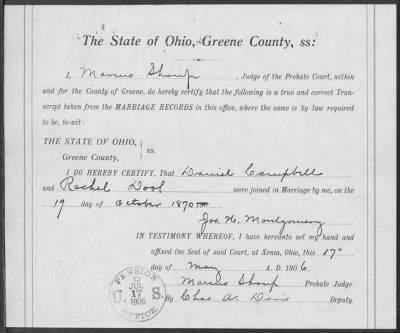 The State of Ohio, Greene County, ss:
I, Marcus Shoup, Judge of the Probate Court, within
and for the County of Greene, do hereby certify that the following is a true and correct Tran-
script taken from the MARRIAGE RECORDS in this office, where the same is by law required
to be, to-wit:
THE STATE OF OHIO,
Greene County, ss.
I DO HEREBY CERTIFY, That Daniel Campbell
and Rachel Dool were joined in Marriage by me, on the
19 day of October 1870
Jos. H. Montgomery
IN TESTIMONY WHEREOF, I have hereunto set my hand and
affixed the Seal of said Court, at Xenia, Ohio, this 17"
day of May A. D. 1906.
Marcus Shoup Probate Judge.
By Chas. A. Davis Deputy.
PENSION
U. JUL 17 1906 S.
OFFICE